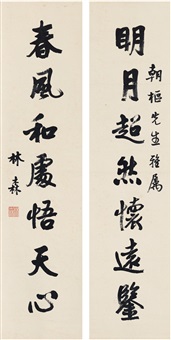 朝樞先生雅屬
明月超然懷遠鑒
春風和處悟天心
林森